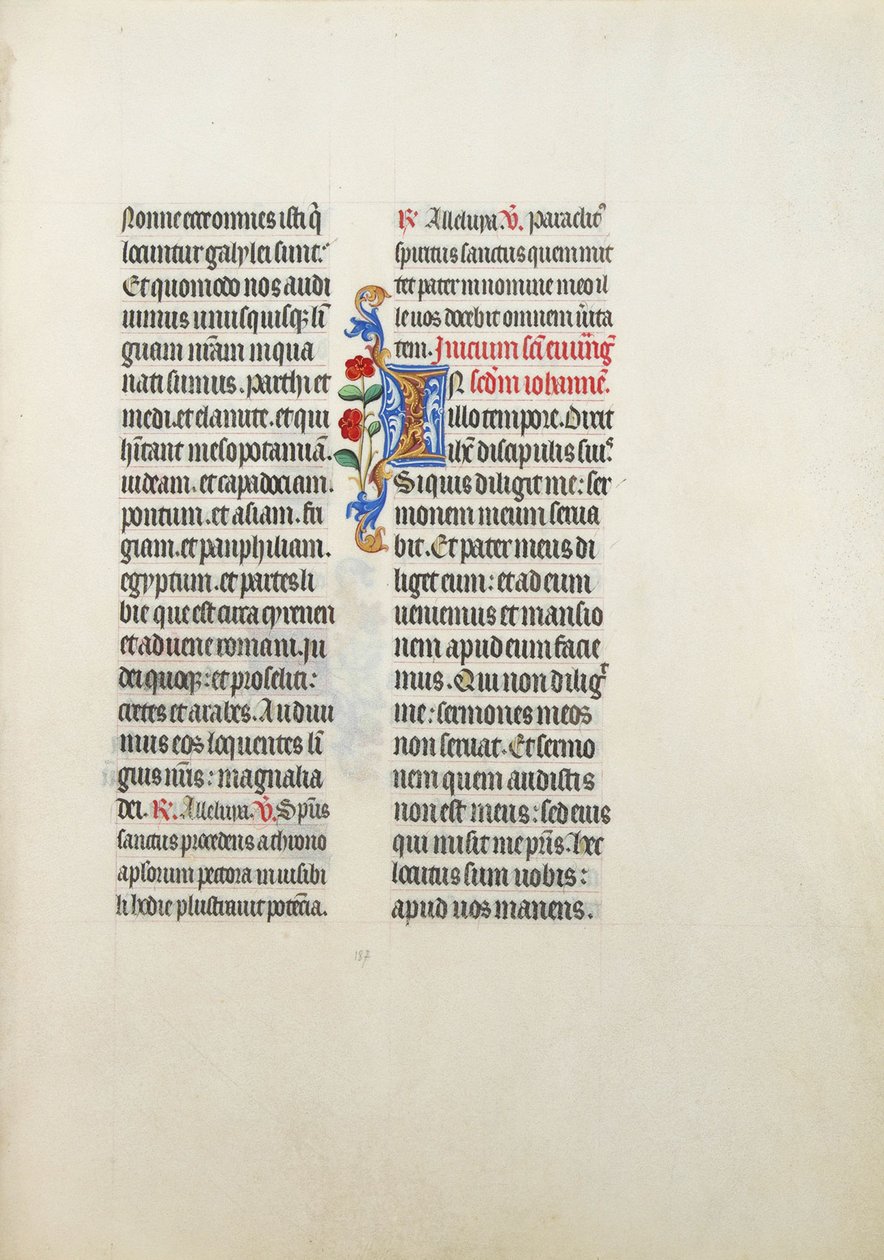 Nonne ecce omnes isti q̄
locuntur galylei sunt:
Et quomodo nos audi
uimus unusquisqꝫ li̅
guam nr̄am in qua
nati sumus. Parthi et
medi. et elamite. et qui
hītant mesopotamiā.
iudeam. et capadociam.
pontum. et asiam. fri
giam. et panphiliam.
egyptum. et partes li
bie que est circa cyrenen
et aduene romani. Iu
dei quoqꝫ: et proseliti:
cretes et arabes. Audiui
mus eos loquentes li̅
guis nr̄is: magnalia
dei. R̸. Alleluya. V̸. Sp̄us
sanctus procedens a throno
ap̄lorum pectora inuisibi
li hodie plustrauit potēcia.
R̸ Alleluya. V̸. Paraclitꝰ
spiritus sanctus quem mit
tet pater in nomine meo il
le uos docebit omnem ūita
tem. Inicium sc̄i euuāg̅
N sed̄m iohannē.
I illo tempore. Dixit
ihc̄ discipulis suis
Si quis diligit me: ser
monem meum serua
bit. Et pater meus di
liget eum: et ad eum
ueniemus et mansio
nem apud eum facie
mus. Qui non diligr
me: sermones meos
non seruat. Et sermo
nem quem audistis
non est meus: sed eius
qui misit me pr̄is. hec
locutus sum uobis:
apud uos manens.
187